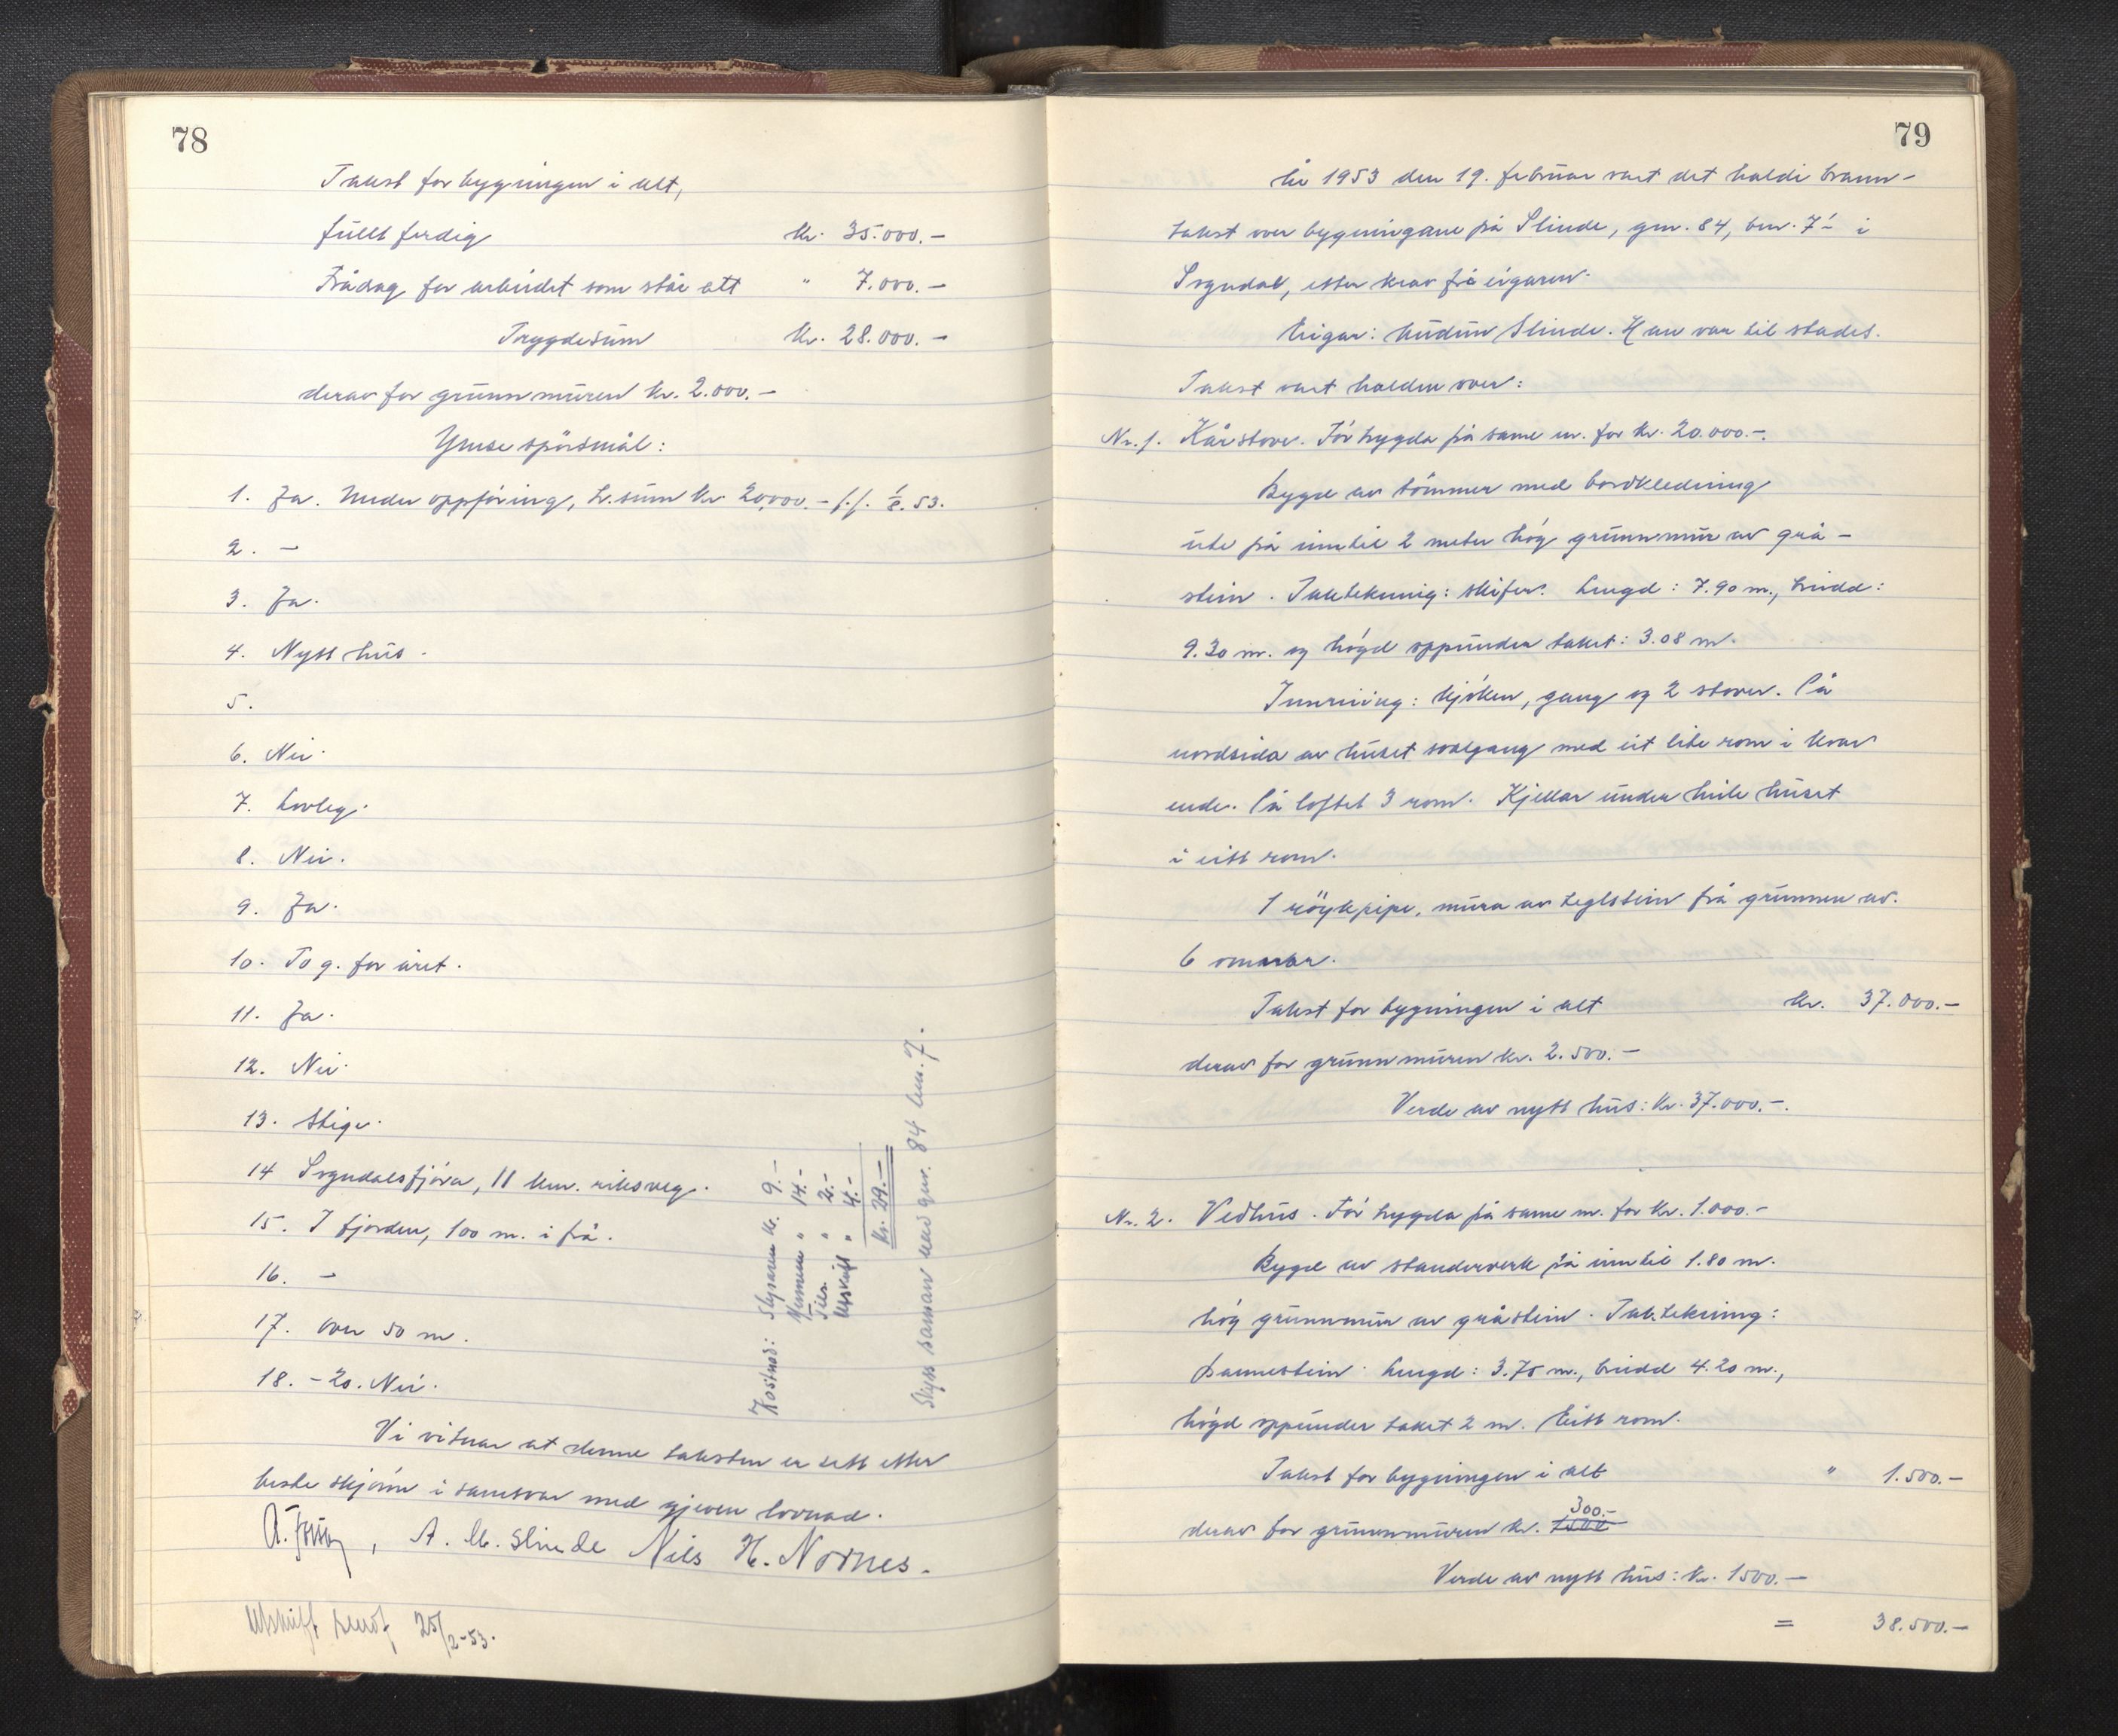 78
Takst for bygningen i alt,
fullt ferdig kr. 35.000.-
Frådrag for arbeidet som står att " 7.000.-
Trygdesum kr. 28.000.-
derav for grunnmuren kr. 2.000.-
Ymse spörsmål:
1. Ja. Under oppföring, tr.sum kr 20.000.-
2. -
3. Ja.
4. Nytt hus.
5.
6. Nei.
7. Lovleg.
8. Nei.
9. Ja.
10. To g. for året.
11. Ja.
12. Nei.
13. Stige.
14 Sogndalsfjöra, 11 km. riksveg.
15. I fjorden, 100 m. i frå.
16. -
17. Over 50 m.
18. - 20. Nei.
Vi vitnar at denne taksten er sett etter
beste skjönn i samsvar med gjeven lovnad.
A. M. Slinde Nils H. Nornes.
Utskrift sendt 25/2-53.
Kostnad: Skjsaren kr. 9.-
Mennene " 14.-
Tils. " 2.-
Utskrift " 4.-
kr. 29.-
Skyss saman med gnr. 84 bnr. 7.
79
År 1953 den 19. februar vart det haldi brann-
takst over bygningane på Slinde, gnr. 84, bnr. 7 i
Sogndal, etter krav frå eigaren.
Eigar: Audun Slinde. Han var til stades.
Takst vart halden over:
Nr. 1. Kårstove. För trygda på same nr. for kr. 20.000.-.
Bygd av tömmer med bordkledning
ute på inntil 2 meter hög grunnmur av grå-
stein. Taktekning: skifer. Lengd: 7.90 m., breidd:
9.30 m. og högd oppunder taket: 3.08 m.
Innreiing: kjöken, gang og 2 stover. På
nordsida av huset svalgang med eit lite rom i kvar
ende. På loftet 3 rom. Kjellar under heile huset
i eitt rom.
1 röykpipe, mura av teglstein frå grunnen av.
6 omnar.
Takst for bygningen i alt kr. 37.000.-
derav for grunnmuren kr. 2.500.-
Verde av nytt hus: kr. 37.000.-.
Nr. 2. Vedhus. För trygda på same nr. for kr. 1.000.-
Bygd av standerverk på inntil 1.80 m.
hög grunnmur av gråstein. Taktekning:
Pannestein. Lengd: 3.75 m., breidd 4.20 m.,
högd oppunder taket 2 m. Eitt rom.
Takst for bygningen i alt " 1.500.-
300.-
derav for grunnmuren kr. 1500
Verde av nytt hus: kr. 1500.-
= 38.500.-